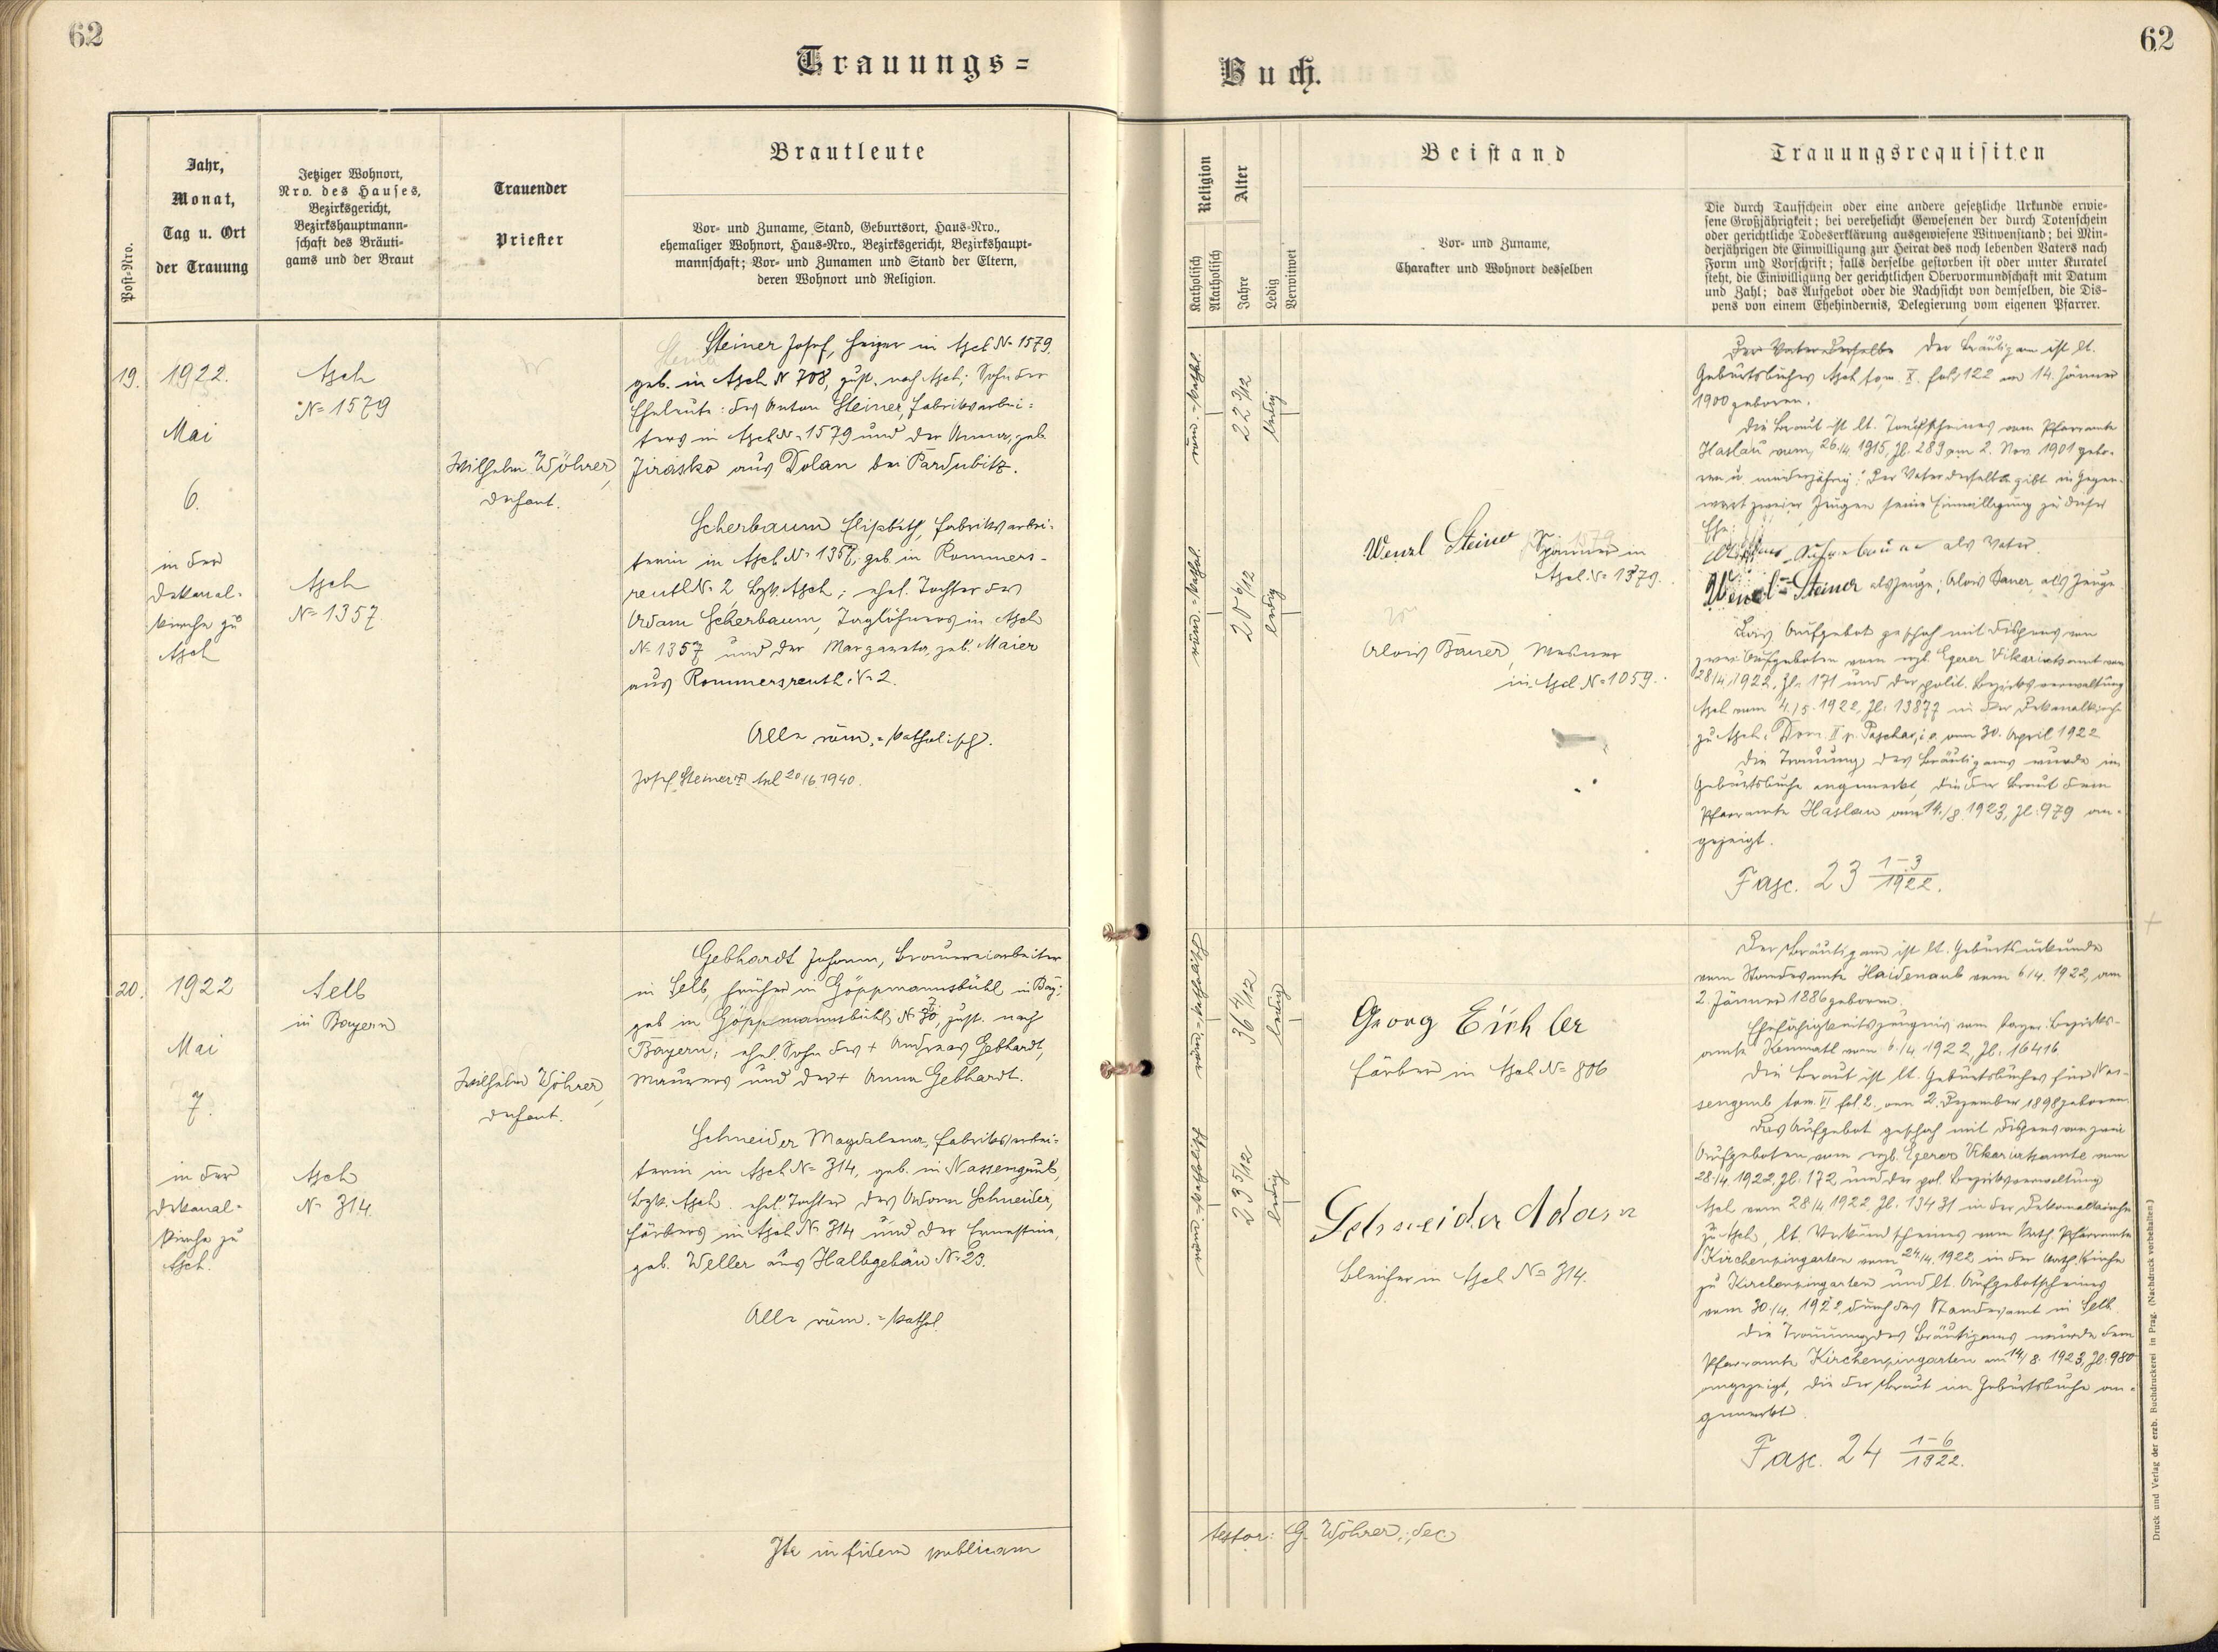 62
62
Trauungs=
Buch.
Post-Nro.
Jahr,
Monat,
Tag u. Ort
der Trauung
Jetziger Wohnort,
Nro. des Hauses,
Bezirksgericht,
Bezirkshauptmann-
schaft des Bräuti-
gams und der Braut
Trauender
Priester
Brautleute
Vor- und Zuname, Stand, Geburtsort, Haus-Nro.,
ehemaliger Wohnort, Haus-Nro., Bezirksgericht, Bezirkshaupt-
mannschaft; Vor- und Zunamen und Stand der Eltern,
deren Wohnort und Religion.
Religion
Katholisch
Akatholisch
Alter
Jahre
Ledig
Verwitwet
Beistand
Vor- und Zuname,
Charakter und Wohnort desselben
Trauungsrequisiten
Die durch Taufschein oder eine andere gesetzliche Urkunde erwie-
sene Großjährigkeit; bei verehelicht Gewesenen der durch Totenschein
oder gerichtliche Todeserklärung ausgewiesene Witwenstand; bei Min-
derjährigen die Einwilligung zur Heirat des noch lebenden Vaters nach
Form und Vorschrift; falls derselbe gestorben ist oder unter Kuratel
steht, die Einwilligung der gerichtlichen Obervormundschaft mit Datum
und Zahl; das Aufgebot oder die Nachsicht von demselben, die Dis-
pens von einem Ehehindernis, Delegierung vom eigenen Pfarrer.
19.
1922.
Mai
6.
in der
Dekanal-
kirche zu
Asch
Asch
N= 1579
Asch
N= 1357
Wilhelm Wöhrer,
Dechant.
Steiner Josef, Heizer in Asch N= 1579.
geb. in Asch N 708, zust. nach Asch; Sohn der
Eheleute: des Anton Steiner, Fabriksarbei-
ters in Asch N= 1579 und der Anna, geb.
Jirasko aus Dolan bei Pardubitz.
Scherbaum Elisabeth, Fabriksarbei-
terin in Asch N= 1357, geb. in Rommers-
reuth N= 2 Bzk. Asch; ehel. Tochter des
Adam Scherbaum, Taglöhners in Asch
N= 1357 und der Margareta, geb. Maier
aus Rommersreuth N= 2.
Alle röm.=katholisch.
Josef Steiner 20/6 1940.
röm.=kathol.
22 3/12
ledig
röm.=kathol.
20 6/12
ledig
Wenzl Steiner Spinner in
Asch N= 1579.
Alois Bauer, Mesner
in Asch N= 1059.
Der Vater derselbe Der Bräutigam ist lt.
Geburtsbuches Asch tom. X. fol. 122 am 14. Jänner
1900 geboren.
Die Braut ist lt. Taufscheines vom Pfarramte
Haslau vom 26./4. 1915, Zl. 289 am 2. Nov. 1901 gebo-
ren u. minderjährig: Der Vater derselben gibt in Gegen-
wart zweier Zeugen seine Einwilligung zu dieser
Ehe:
als Vater.
Wenzl Steiner als Zeuge; Alois Bauer, als Zeuge
Das Aufgebot geschah mit Dispens von
zwei Aufgeboten vom erzb. Egerer Vikariatsamt vom
28/4. 1922, Zl. 171 und der polit. Bezirksverwaltung
Asch vom 4./5. 1922, Zl. 13877 in der Dekanalkirche
zu Asch, Dom. II p. Pascha, i. e. am 30. April 1922.
Die Trauung des Bräutigams wurde im
Geburtsbuche angemerkt, die der Braut dem
Pfarramte Haslau am 14./8. 1923, Zl. 979 an-
gezeigt.
Fasc. 23 1-3/1922.
20.
1922
Mai
7.
in der
Dekanal-
kirche zu
Asch.
Selb
in Bayern
Asch
N= 314.
Wilhelm Wöhrer,
Dechant.
Gebhardt Johann, Brauereiarbeiter
in Selb, früher in Göppmannsbühl in Bay;
geb in Göppmannsbühl, zust. nach
Bayern; ehel. Sohn des + Andreas Gebhardt,
Maurers und der + Anna Gebhardt.
Schneider Magdalena, Fabriksarbei-
terin in Asch N= 314, geb. in Nassengrub,
Bzk. Asch. ehel. Tochter des Adam Schneider,
Färbers in Asch N= 314 und der Ernestine,
geb. Weller aus Halbgebäu N= 23.
Alle röm.=kathol.
röm.=katholisch
36 4/12
ledig
röm.=katholisch
23 5/12
ledig
Georg Eichler
Färber in Asch N= 806
Schneider Adam
Bleicher in Asch N= 314.
Der Bräutigam ist lt. Geburtsurkunde
vom Standesamte Haidenaab vom 6/4. 1922, am
2. Jänner 1886 geboren.
Ehefähigkeitszeugnis vom bayer. Bezirks-
amte Kemnath vom 6./4. 1922, Zl. 16416.
Die Braut ist lt. Geburtsbuches für Nas-
sengrub tom. VI fol. 2. am 2. Dezember 1898 geboren.
Das Aufgebot geschah mit Dispens von zwei
Aufgeboten vom erzb. Egerer Vikariatsamte vom
28./4. 1922, Zl. 172 und der pol. Bezirksverwaltung
Asch vom 28/4 1922, Zl. 13431 in der Dekanalkirche
zu Asch, lt. Verkündscheines vom kath. Pfarramte
Kirchenpingarten vom 24./4. 1922 in der kath. Kirche
zu Kirchenpingarten und lt. Aufgebotscheines
vom 30./4. 1922, durch das Standesamt in Selb.
Die Trauung des Bräutigams wurde dem
Pfarramte Kirchenpingarten am 14/8. 1923, Zl. 980
angezeigt, die der Braut im Geburtsbuche an-
gemerkt.
Fasc. 24 1-6/1922.
Ita in fidem publicam
testor: G. Wöhrer, dec.
Druck und Verlag der erzb. Buchdruckerei in Prag. (Nachdruck vorbehalten.)